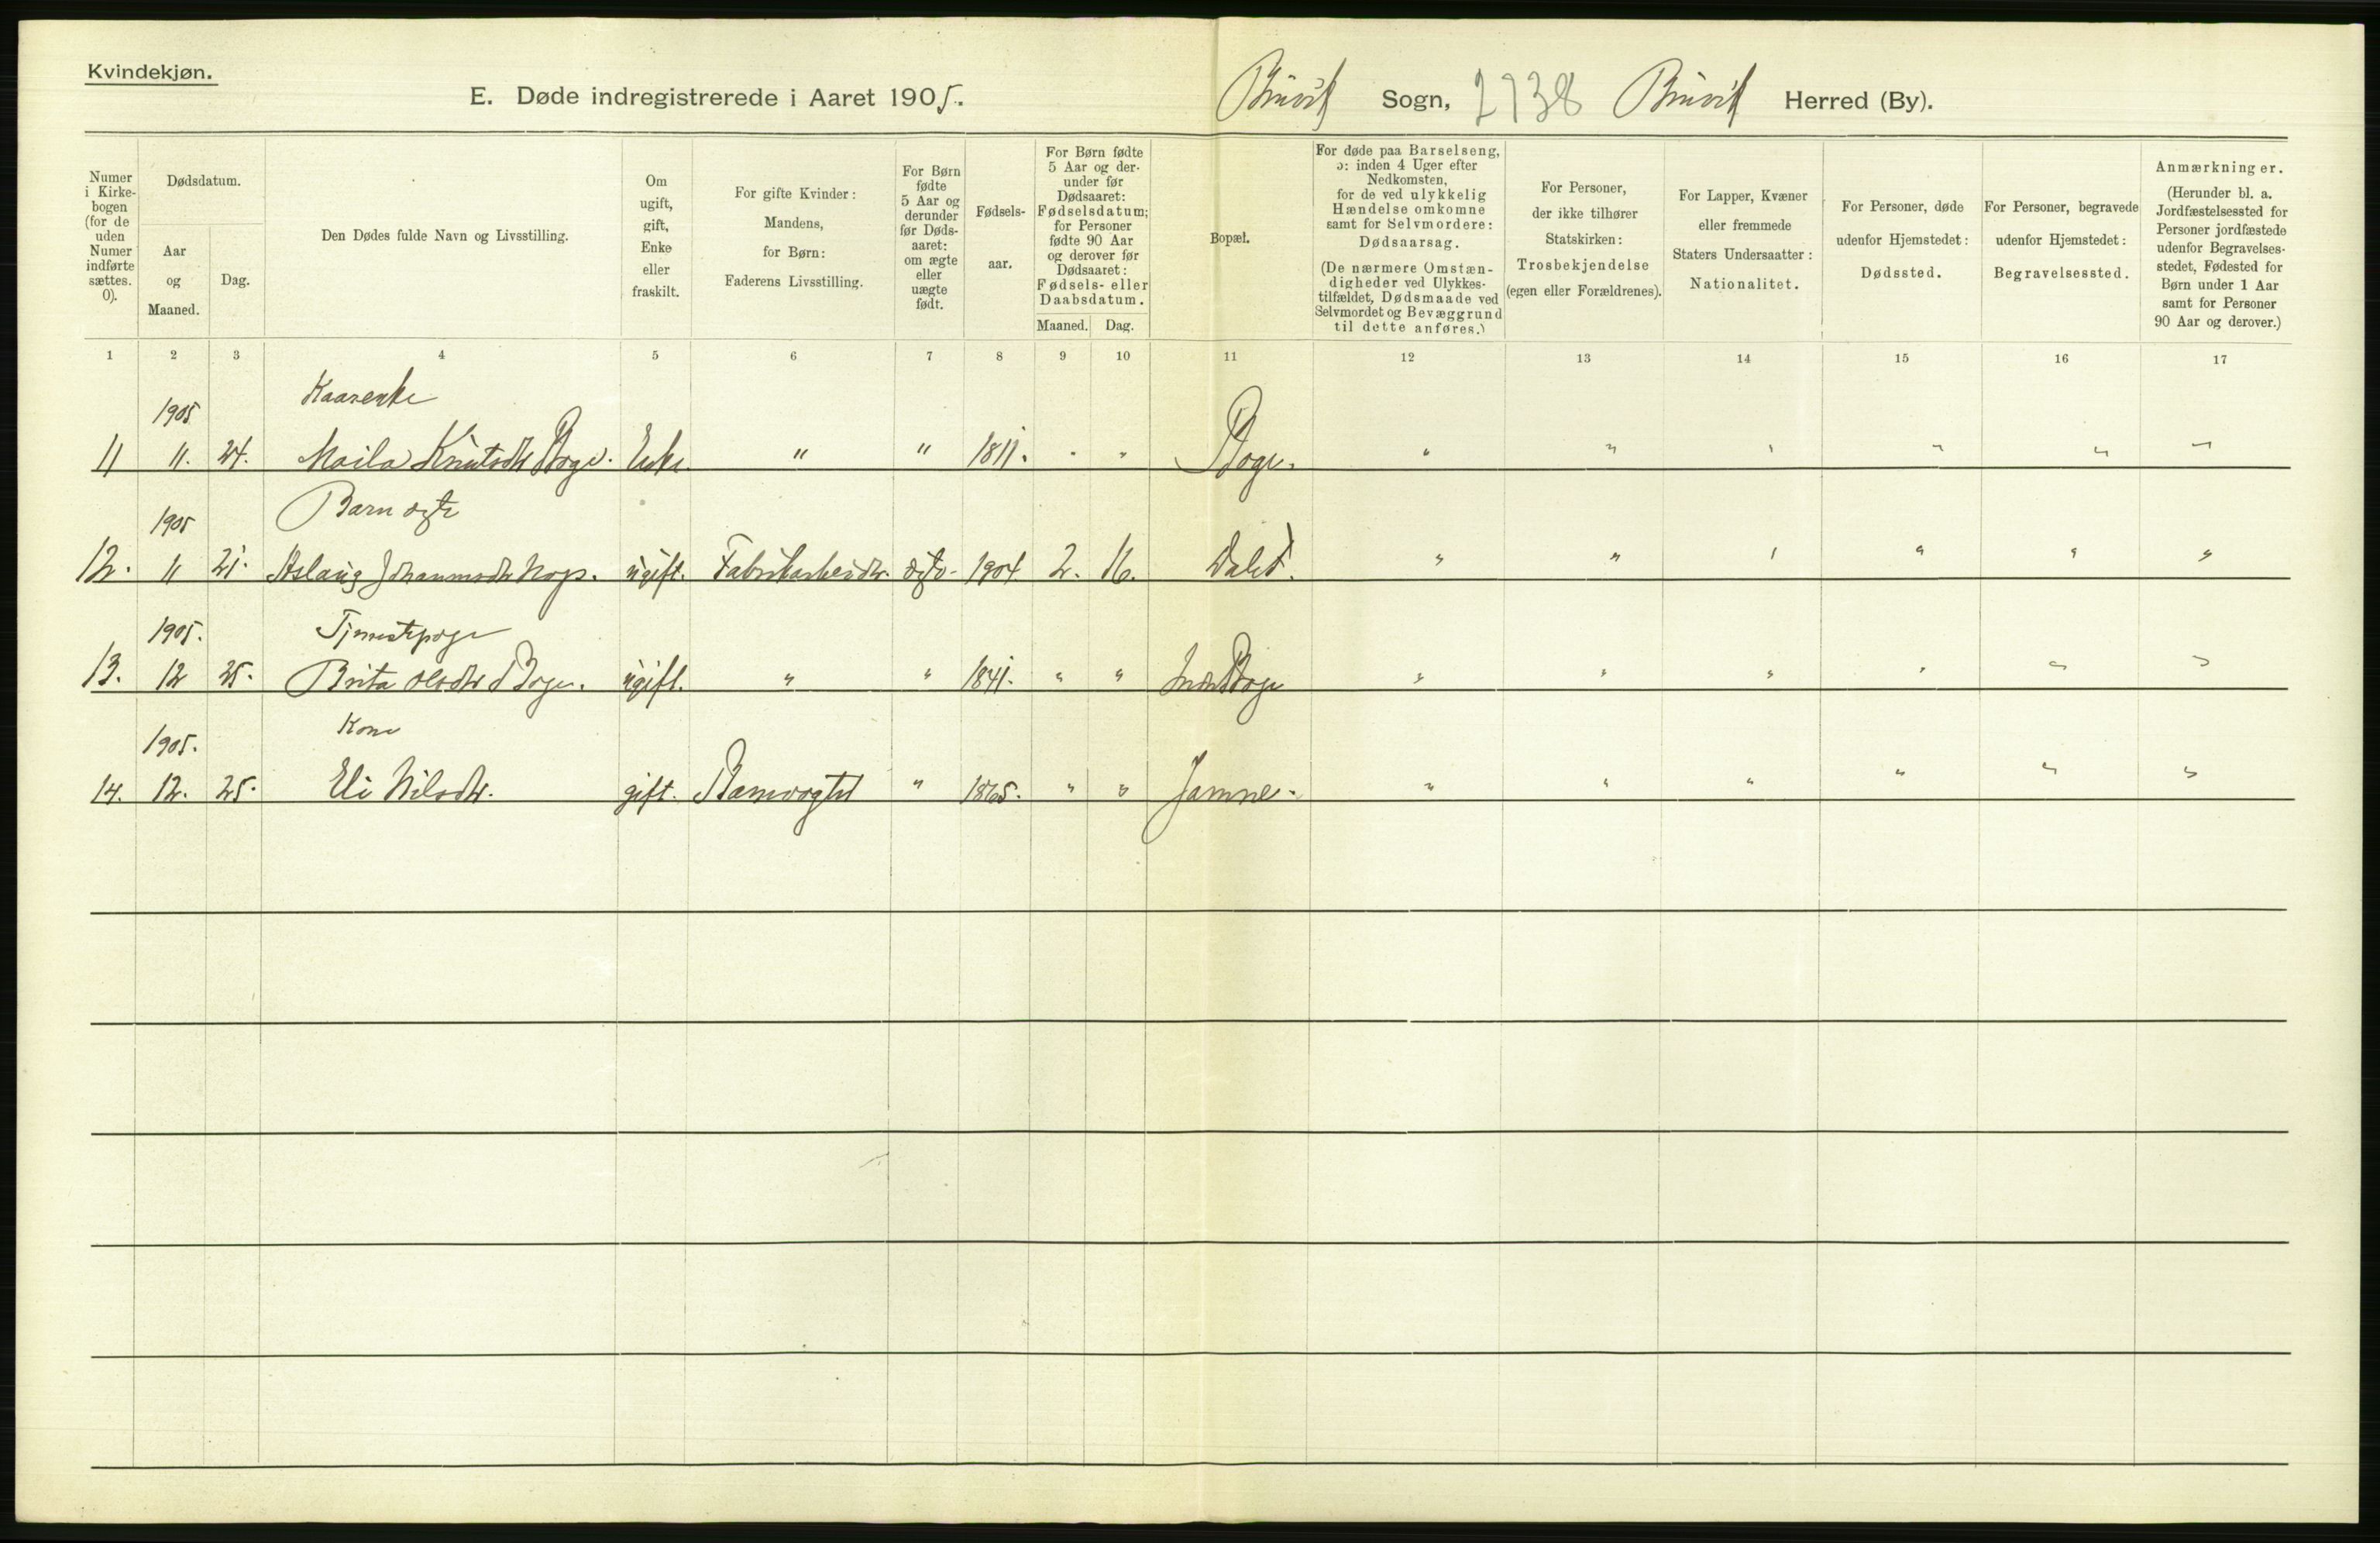 Kvindekjøn.
E. Døde indregistrerede i Aaret 1905.
Bruvik Sogn, 2738 Bruvik Herred (By).
Numer i Kirkebogen (for de uden Numer indførte sættes. 0).
Dødsdatum.
Aar og Maaned.
Dag.
Den Dødes fulde Navn og Livsstilling.
Om ugift, gift, Enke eller fraskilt.
For gifte Kvinder: Mandens, for Børn: Faderens Livsstilling.
For Børn fødte 5 Aar og derunder før Dødsaaret: om ægte eller uægte født.
Fødselsaar.
For Børn fødte 5 Aar og derunder før Dødsaaret: Fødselsdatum; for Personer fødte 90 Aar og derover før Dødsaaret: Fødsels- eller Daabsdatum.
Maaned. Dag.
Bopæl.
For døde paa Barselseng, ɔ: inden 4 Uger efter Nedkomsten, for de ved ulykkelig Hændelse omkomne samt for Selvmordere: Dødsaarsag.
(De nærmere Omstændigheder ved Ulykkestilfældet, Dødsmaade ved Selvmordet og Bevæggrund til dette anføres.)
For Personer, der ikke tilhører Statskirken: Trosbekjendelse (egen eller Forældrenes).
For Lapper, Kvæner eller fremmede Staters Undersaatter: Nationalitet.
For Personer, døde udenfor Hjemstedet: Dødssted.
For Personer, begravede udenfor Hjemstedet: Begravelsessted.
Anmærkninger.
(Herunder bl. a. Jordfæstelsessted for Personer jordfæstede udenfor Begravelsesstedet, Fødested for Børn under 1 Aar samt for Personer 90 Aar og derover.)
1 2 3 4 5 6 7 8 9 10 11 12 13 14 15 16 17
1905 Kaarenke
11 11. 24. Knutsdtr Boge. Enke " " 1811. " " Boge. " " " " " "
1905 Barn ægte
12. 11 21. Aslaug Johannesdtr ugift. Fabrikarbeider. ægte 1904 2. 16. Dalet. " " " " " "
1905.
13. 12 25. Brita Olsdtr Boge. ugift. " " 1841. " " Boge " " " " " "
1905. Kone
14. 12. 25. Eli Nilsdtr. gift. Banevogter " 1865. " " Jamne. " " " " " "